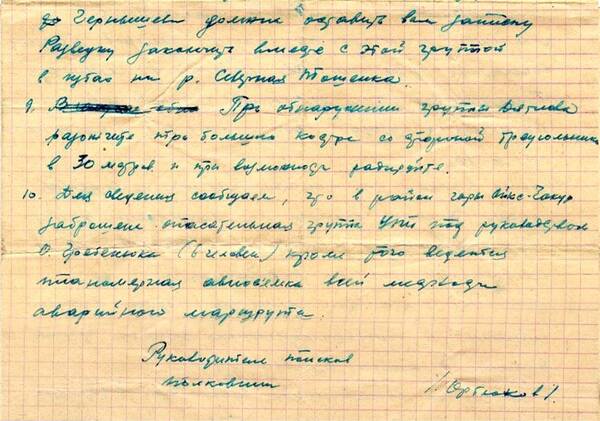 до Чернышева должны оставить вам записку
Разведку закончить вместе с этой группой
в чумах на р. Северная Тошемка.
9. При обнаружении группы Дятлова
разожгите три больших костра со стороной треугольника
в 30 метров и при возможности радируйте.
10. Для сведения сообщаем, что в район горы Ойко-Чакур
заброшена спасательная группа УПИ под руководством
О. Гребенника (6 человек) кроме того ведется
планомерная авиосъемка всей
аварийного маршрута.
Руководитель поисков
полковник / Ортюков /.